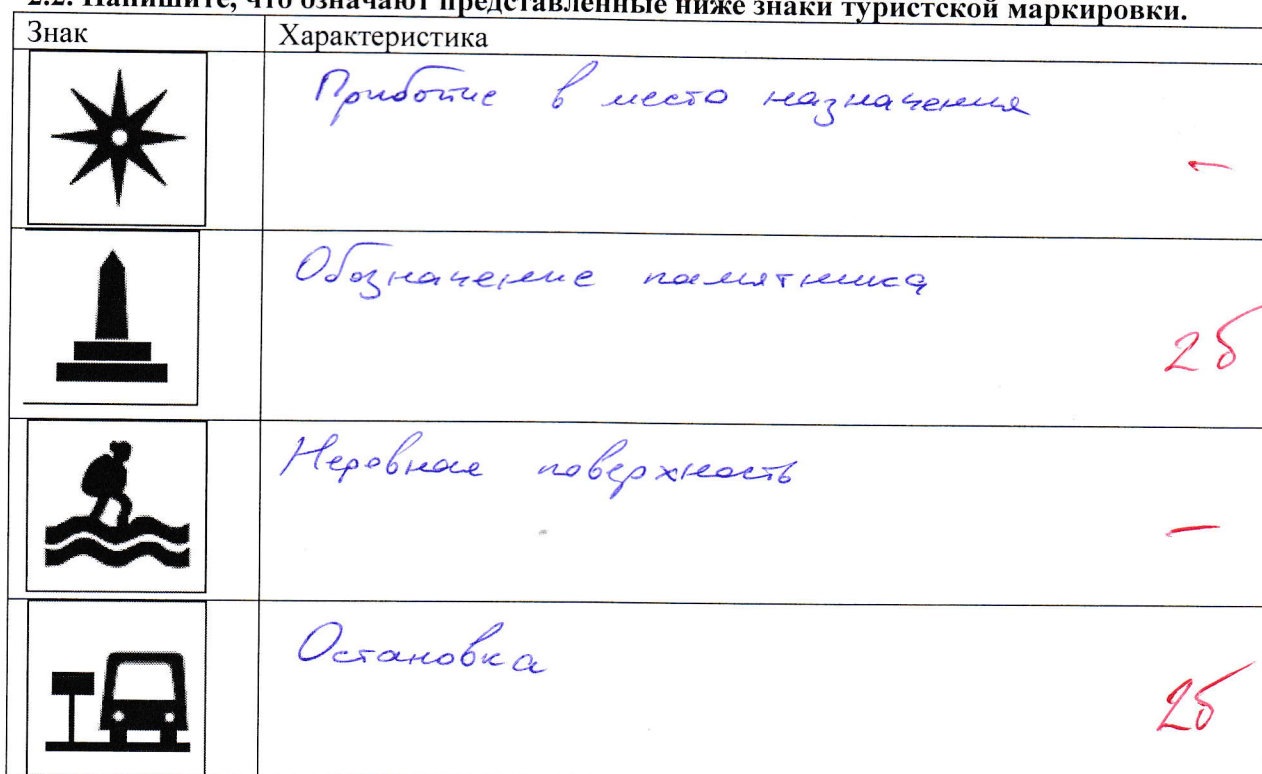 2.2. Напишите, что означают представленные ниже знаки туристской маркировки.
Знак Характеристика
Прибытие в место назначения
-
Обозначение памятника
2б
Неровная поверхность
-
Остановка
2б